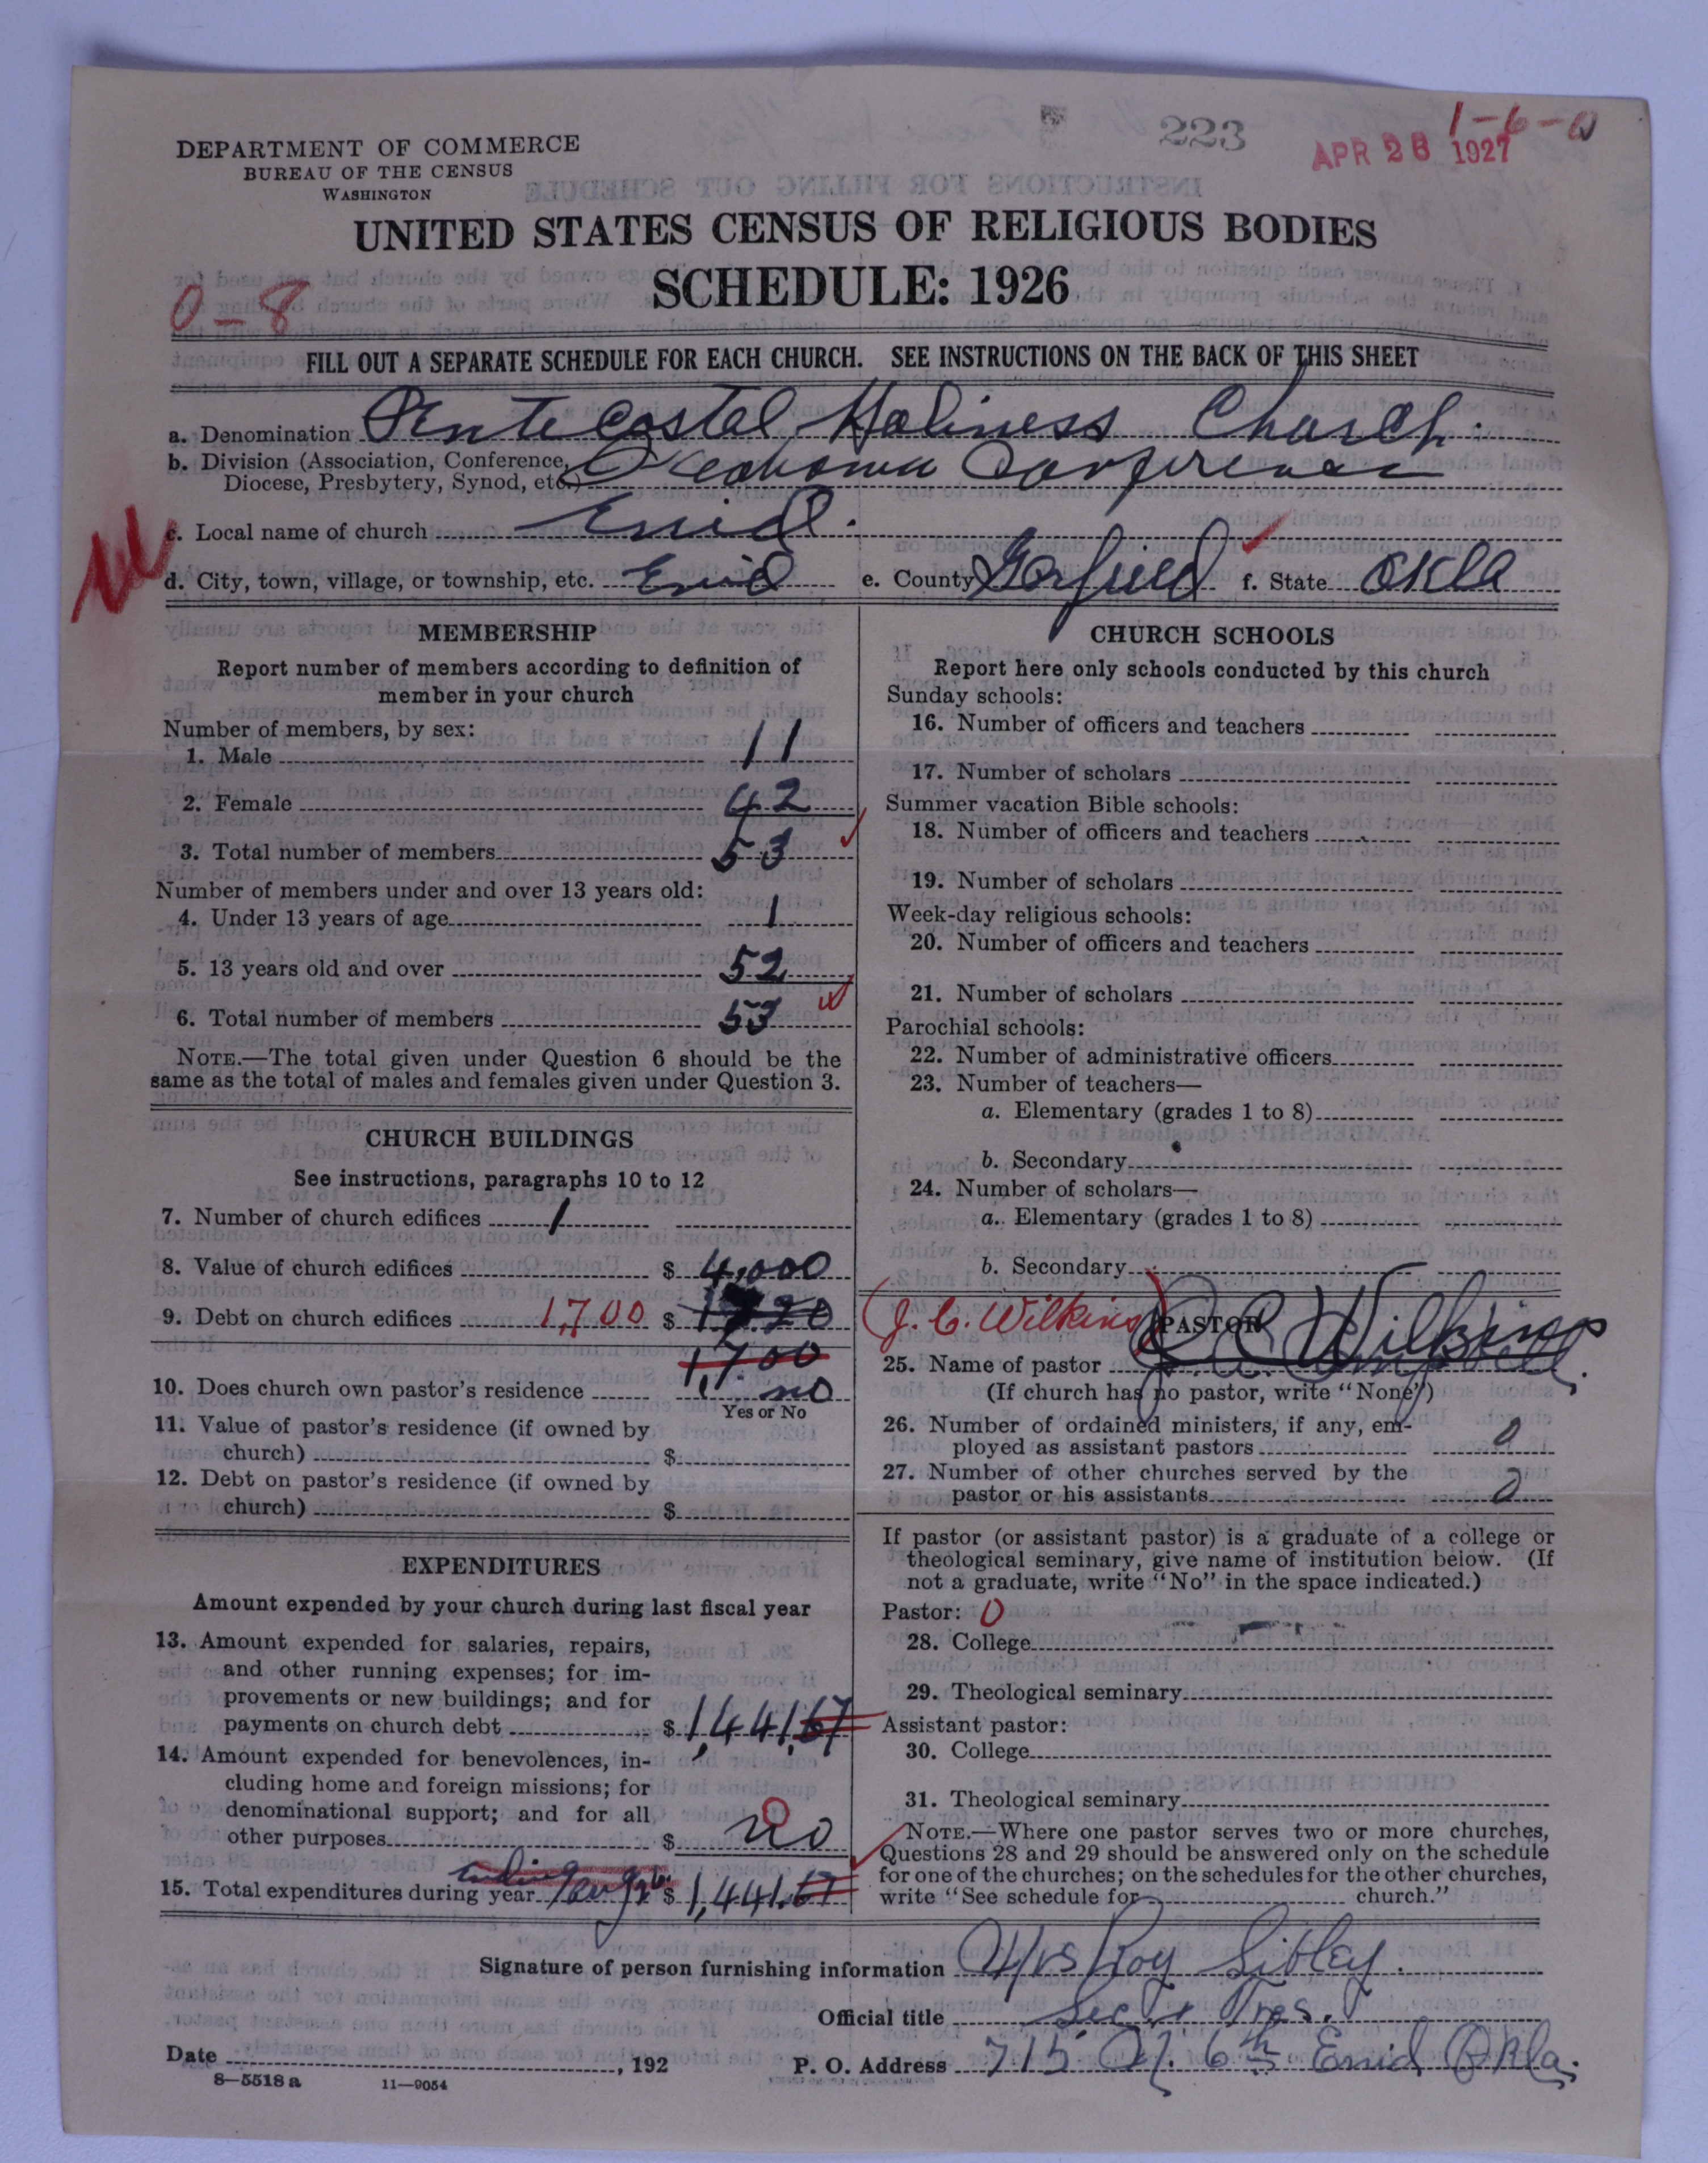 223
1-6-0
APR 26 1927
DEPARTMENT OF COMMERCE
BUREAU OF THE CENSUS
WASHINGTON
UNITED STATES CENSUS OF RELIGIOUS BODIES
SCHEDULE: 1926
0-8
FILL OUT A SEPARATE SCHEDULE FOR EACH CHURCH. SEE INSTRUCTIONS ON THE BACK OF THIS SHEET
a. Denomination Pentecostal Holiness Church.
b. Division (Association, Conference, Diocese, Presbytery, Synod, etc.) Oklahoma Conference
c. Local name of church Enid.
d. City, town, village, or township, etc. Enid e. County Garfield f. State Okla
MEMBERSHIP
Report number of members according to definition of
member in your church
Number of members, by sex:
1. Male 11
2. Female 42
3. Total number of members 53
Number of members under and over 13 years old:
4. Under 13 years of age 1
5. 13 years old and over 52
6. Total number of members 53
NOTE.—The total given under Question 6 should be the
same as the total of males and females given under Question 3.
CHURCH BUILDINGS
See instructions, paragraphs 10 to 12
7. Number of church edifices 1
8. Value of church edifices $ 4,000
9. Debt on church edifices 1,700 $
1,700
10. Does church own pastor's residence no
Yes or No
11. Value of pastor's residence (if owned by
church) $
12. Debt on pastor's residence (if owned by
church) $
EXPENDITURES
Amount expended by your church during last fiscal year
13. Amount expended for salaries, repairs,
and other running expenses; for im-
provements or new buildings; and for
payments on church debt $ 1,441.67
14. Amount expended for benevolences, in-
cluding home and foreign missions; for
denominational support; and for all
other purposes $ no 0
15. Total expenditures during year $ 1,441.67
CHURCH SCHOOLS
Report here only schools conducted by this church
Sunday schools:
16. Number of officers and teachers
17. Number of scholars
Summer vacation Bible schools:
18. Number of officers and teachers
19. Number of scholars
Week-day religious schools:
20. Number of officers and teachers
21. Number of scholars
Parochial schools:
22. Number of administrative officers
23. Number of teachers—
a. Elementary (grades 1 to 8)
b. Secondary
24. Number of scholars—
a. Elementary (grades 1 to 8)
b. Secondary
(J. C. Wilkins) PASTOR
25. Name of pastor J. C. Wilkins
(If church has no pastor, write "None")
26. Number of ordained ministers, if any, em-
ployed as assistant pastors 0
27. Number of other churches served by the
pastor or his assistants 0
If pastor (or assistant pastor) is a graduate of a college or
theological seminary, give name of institution below. (If
not a graduate, write "No" in the space indicated.)
Pastor: 0
28. College
29. Theological seminary
Assistant pastor:
30. College
31. Theological seminary
NOTE.—Where one pastor serves two or more churches,
Questions 28 and 29 should be answered only on the schedule
for one of the churches; on the schedules for the other churches,
write "See schedule for church."
Signature of person furnishing information Mrs Roy Sibley.
Official title Sec & Tres.
Date , 192 P. O. Address 715 N. 6th Enid Okla.
8-5518 a 11-9054